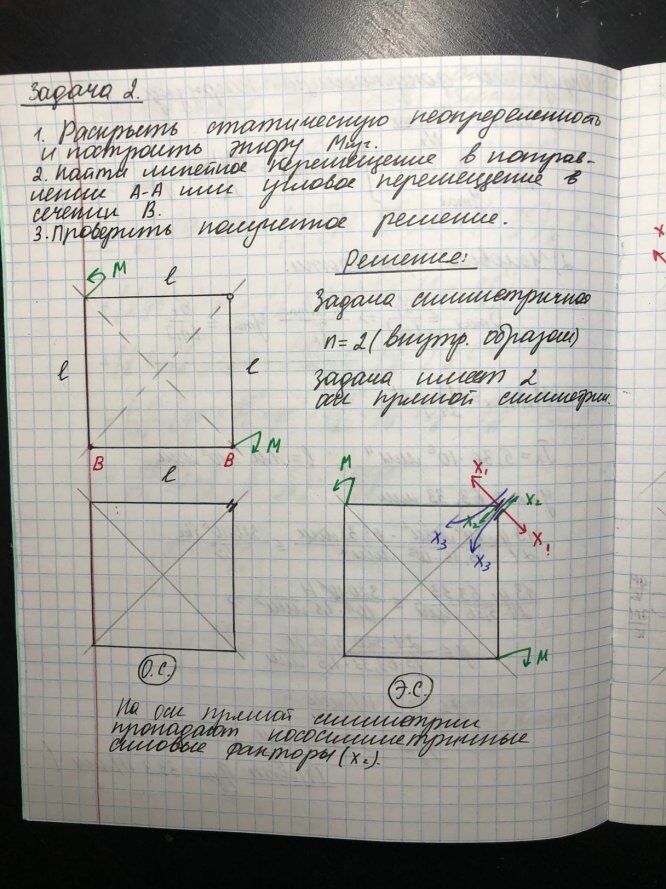 Задача 2.
1. Раскрыть статическую неопределенность
и построить эпюру Mизг.
2. Найти линейное перемещение в направ-
лении А-А или угловое перемещение в
сечении В.
3. Проверить полученное решение.
Решение:
M
l
Задача симметрична
n=2 (внутр. образом)
l
l
Задача имеет 2
оси прямой симметрии.
B
B
M
l
M
X₁
X₂
X₂
X₃
X₃
X₁
M
О.С.
Э.С.
На оси прямой симметрии
пропадают кососимметричные
силовые факторы (X₂).